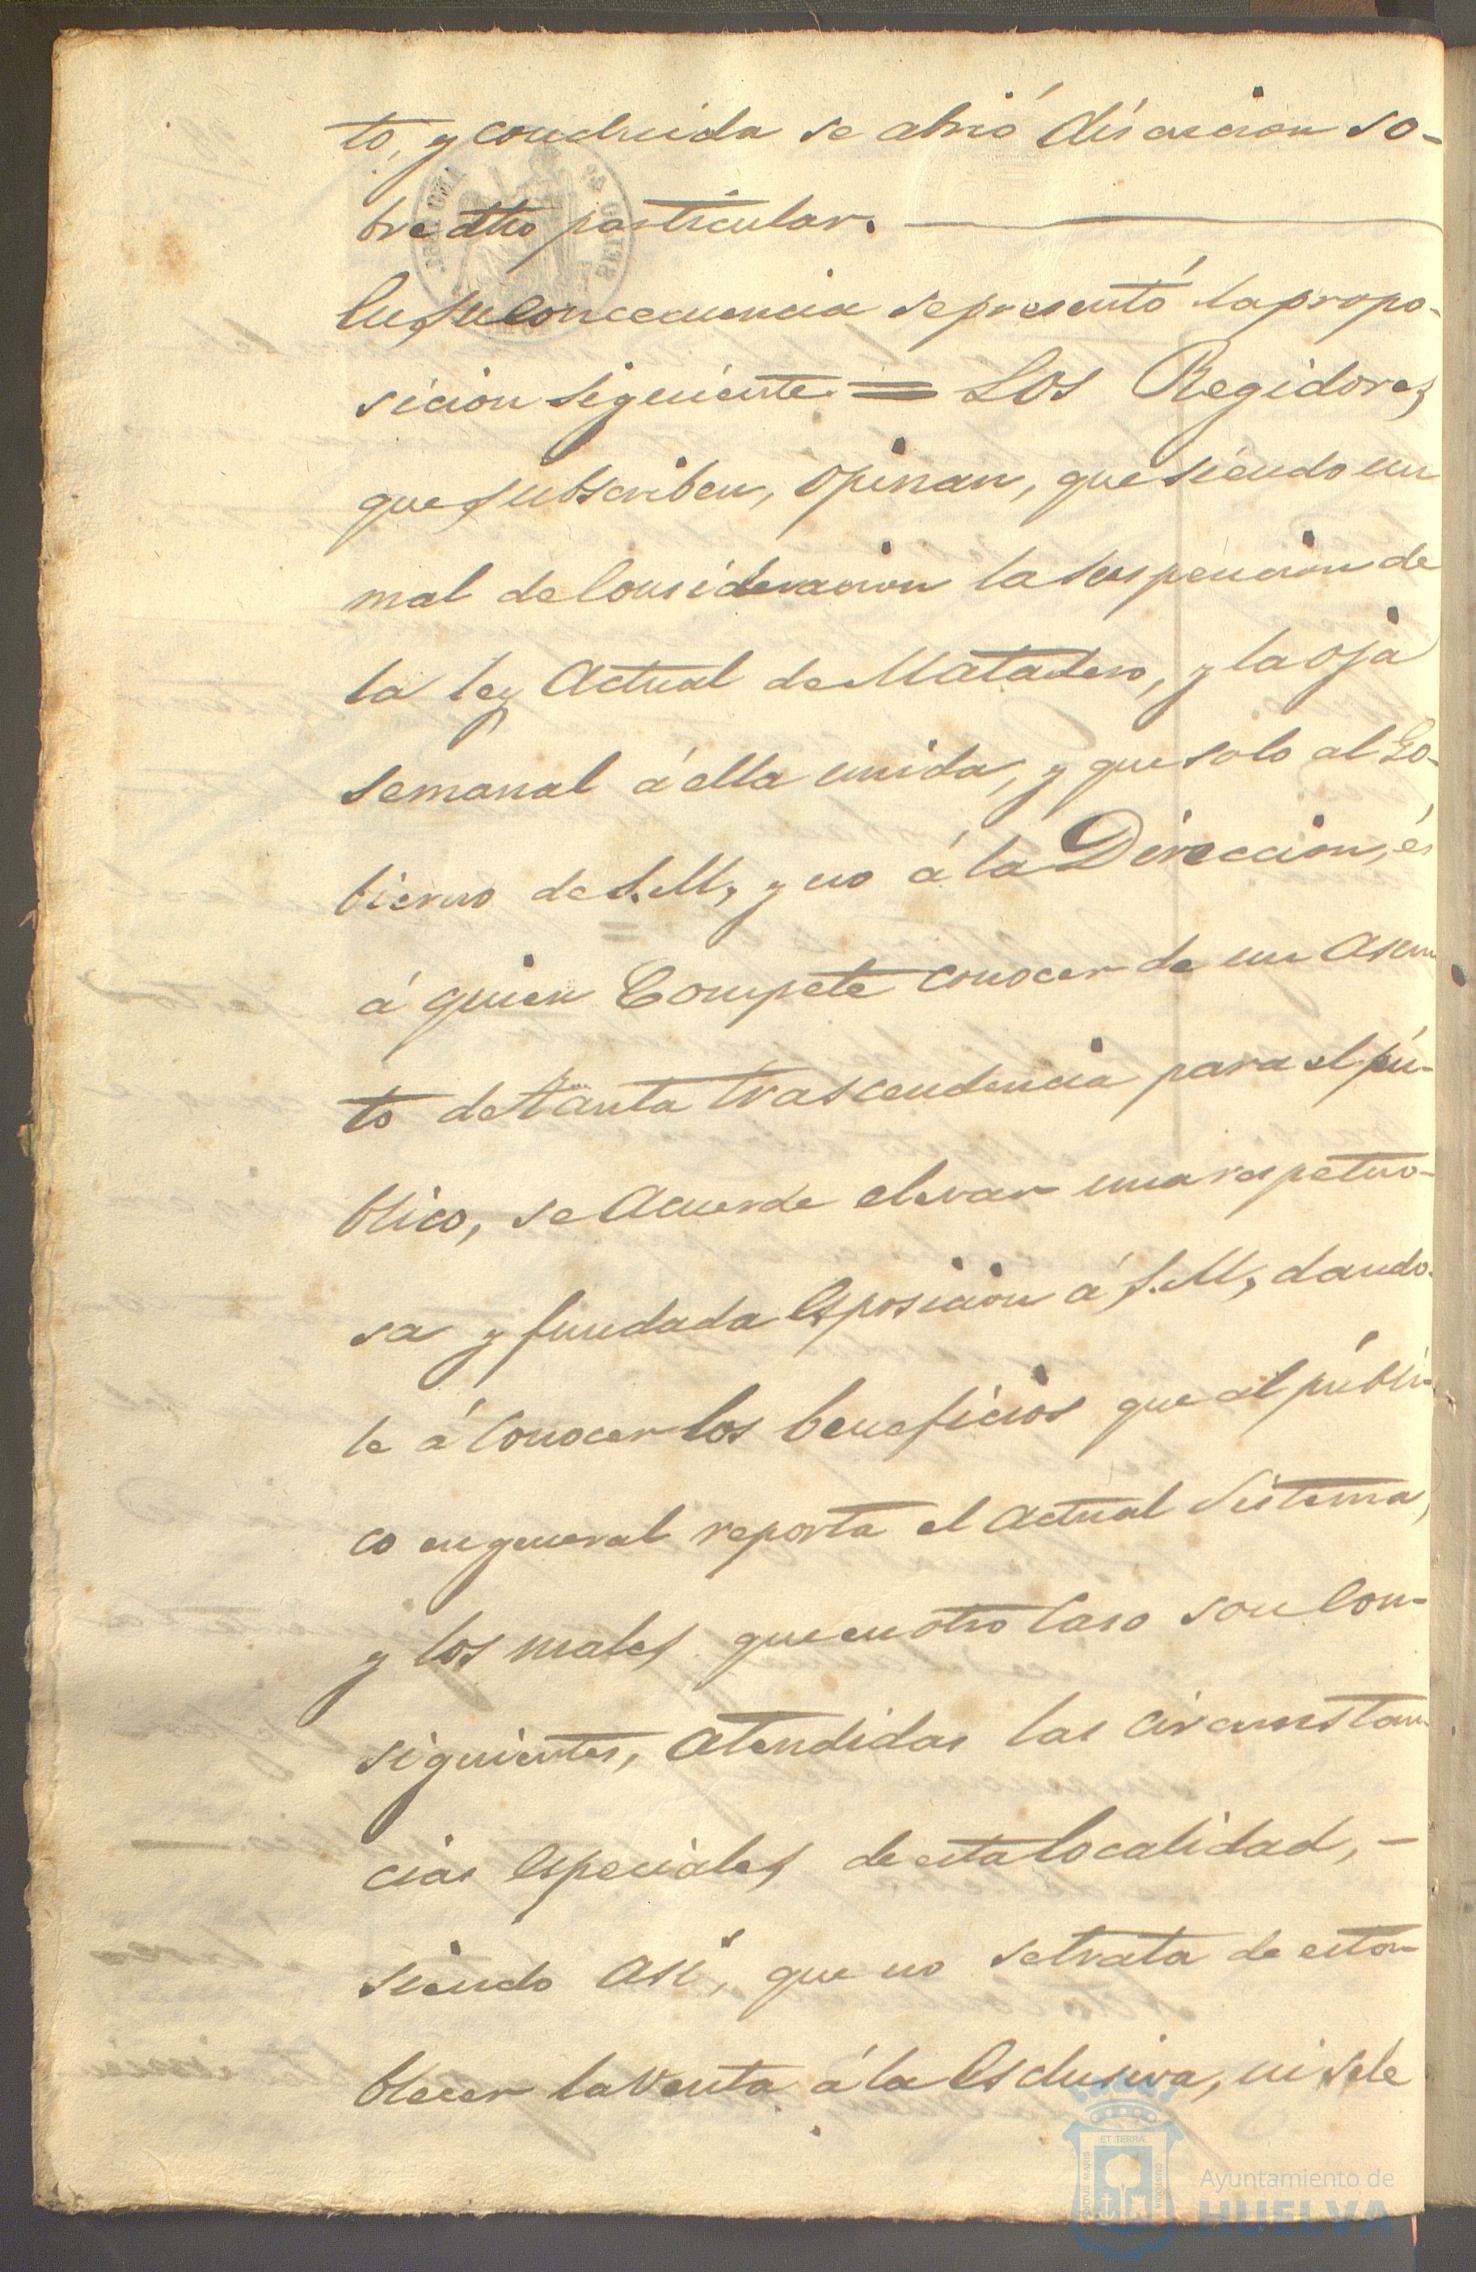 to, y concluida se abrió discucion so-
bre dho particular.
En su concecuencia se presentó la propo-
sicion siguiente = Los Regidores
que subscriben, opinan, que siendo un
mal de Consideracion la suspencion de
la ley Actual de Matadero, y la oja
semanal á ella unida, y que solo al Go-
bierno de S.M, y no á la Direccion, és
á quien Compete conocer de un Asun
to de tanta trascendencia para el pú-
blico, se Acuerde elevar una respetuo-
sa y fundada Esposicion á S.M, dando-
le á Conocer los beneficios que al públi-
co en general reporta el Actual Sistema,
y los males que en otro Caso son Con-
siguientes, Atendidas las circunstan
cias especiales de esta localidad, -
siendo Asi, que no se trata de esta-
blecer la Venta á la Esclusiva, ni se le
Ayuntamiento de
HUELVA